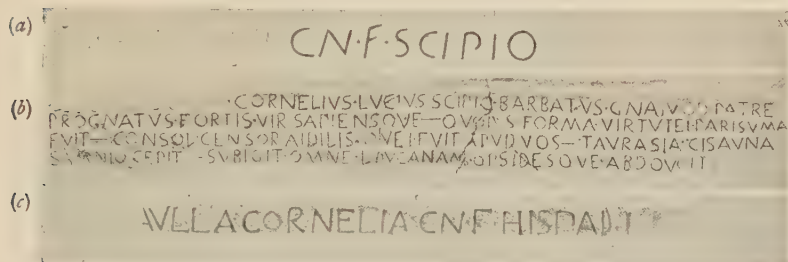 (a) CN·F·SCIPIO
(b) CORNELIVS·LVCIVS·SCIPIO·BARBATVS·GNAIVOD·PATRE
PROGNATVS·FORTIS·VIR·SAPIENSQVE—QVOIVS·FORMA·VIRTVTEI·PARISVMA
FVIT—CONSOL CENSOR AIDILIS·QVEI·FVIT·APVD·VOS—TAVRASIA·CISAVNA
SAMNIO·CEPIT—SVBIGIT·OMNE·LOVCANAM·OPSIDESQVE·ABDOVCIT
(c) AVLLA CORNELIA·CN·F·HISPALLI